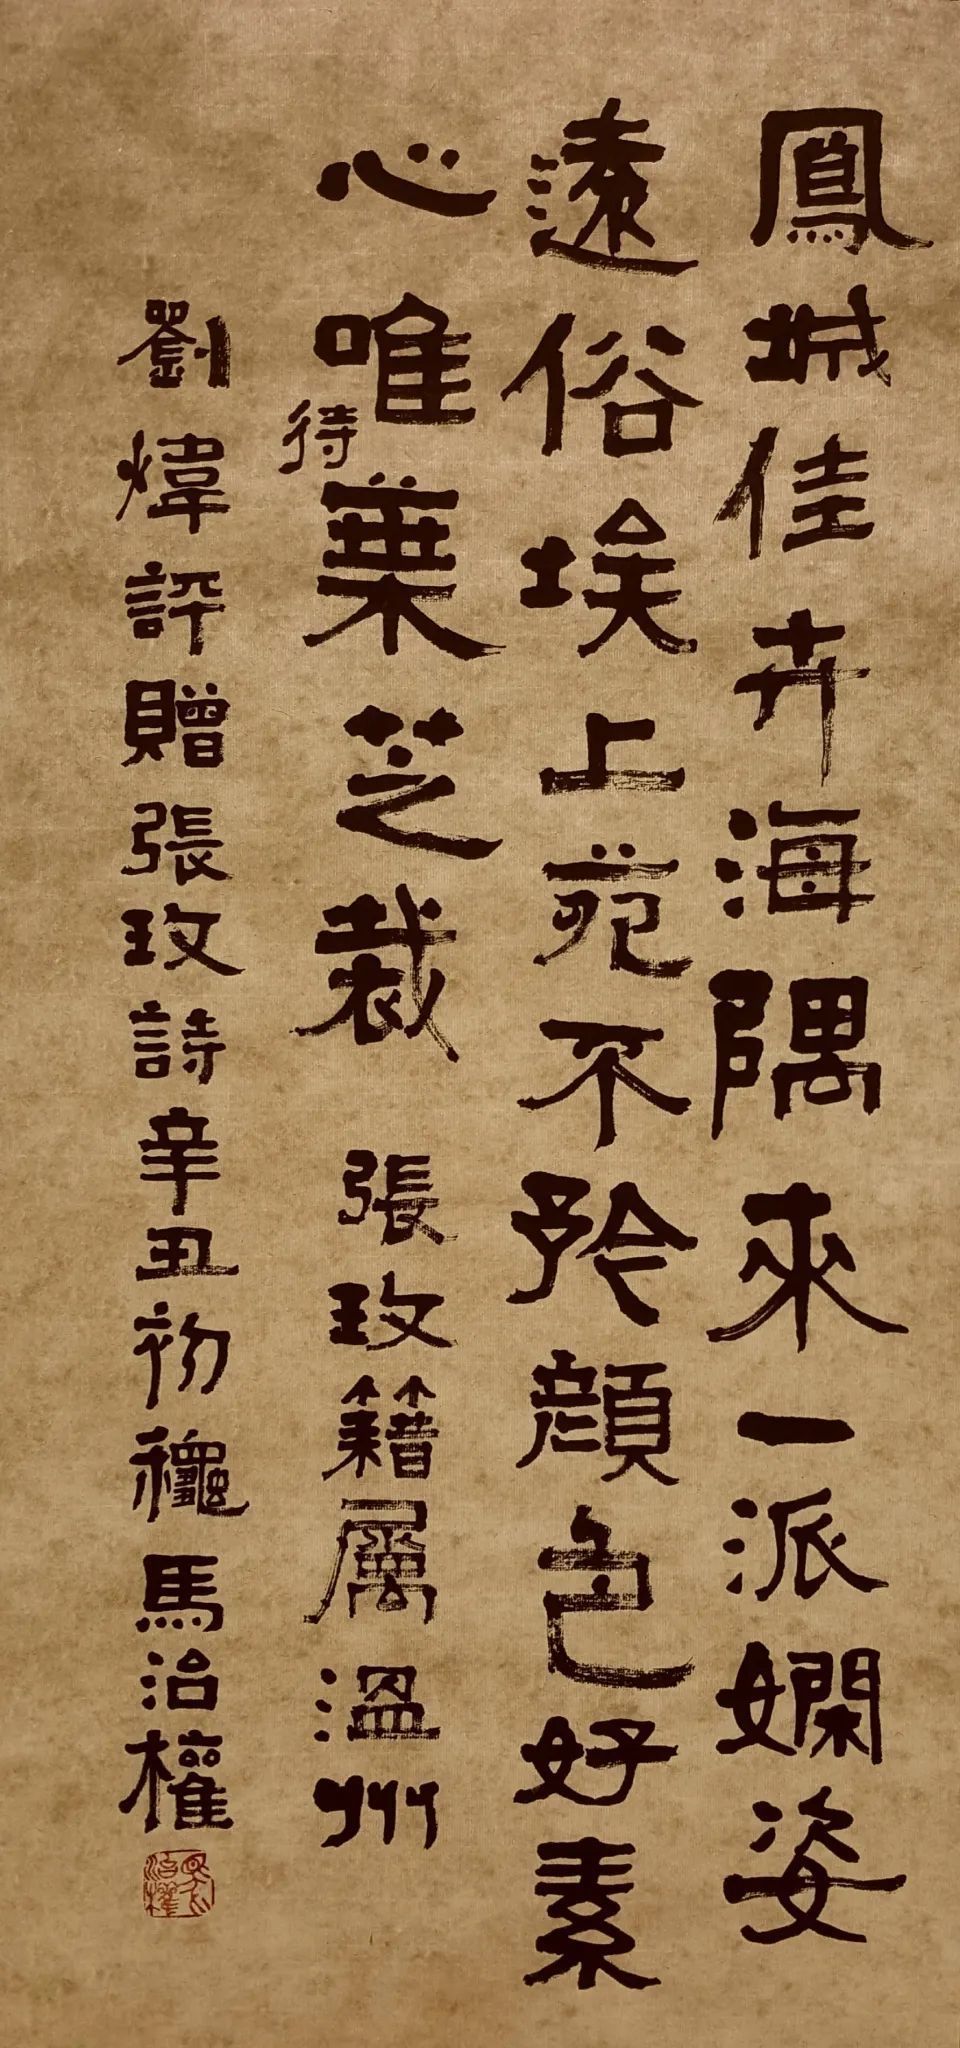 鳳城佳卉海隅來一派嫻姿
遠俗埃上苑不矜顏色好素
心唯待葉芝裁 張玫籍屬溫州
劉煒評贈張玫詩辛丑初穐馬治權